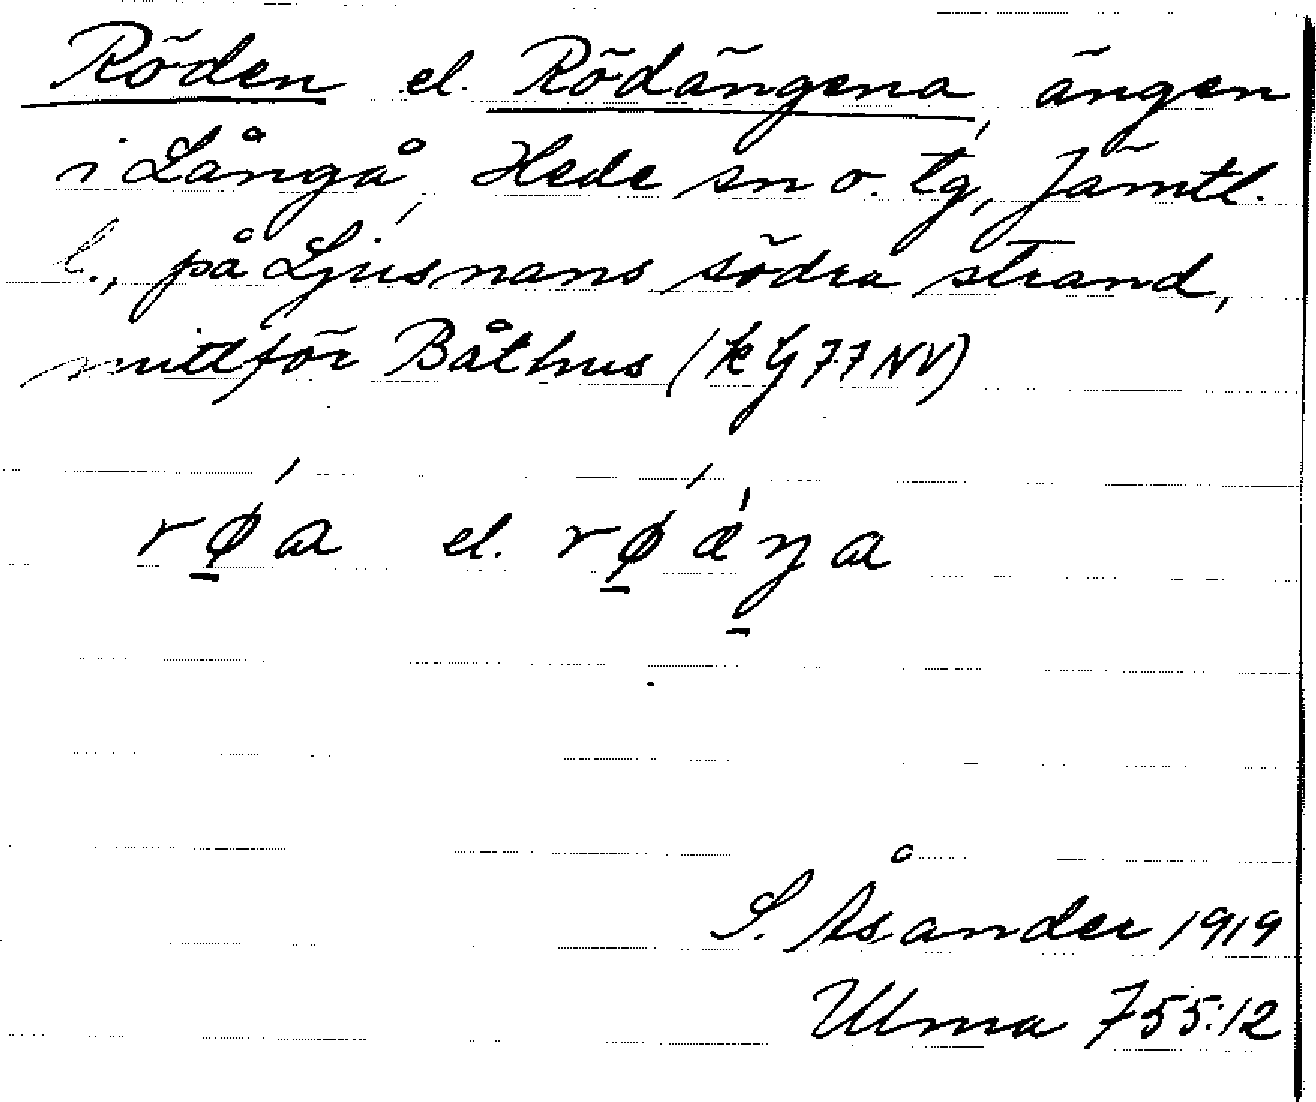 Röden el. Rödängena, ängen
i Långå, Hede sn o. tg, Jämtl.
l., på Ljusnans södra strand,
mittför Båthus (k G 77 NV)
rǿ̱a el. rǿ̱ǽŋa
S. Åsander 1919
Ulma 755:12